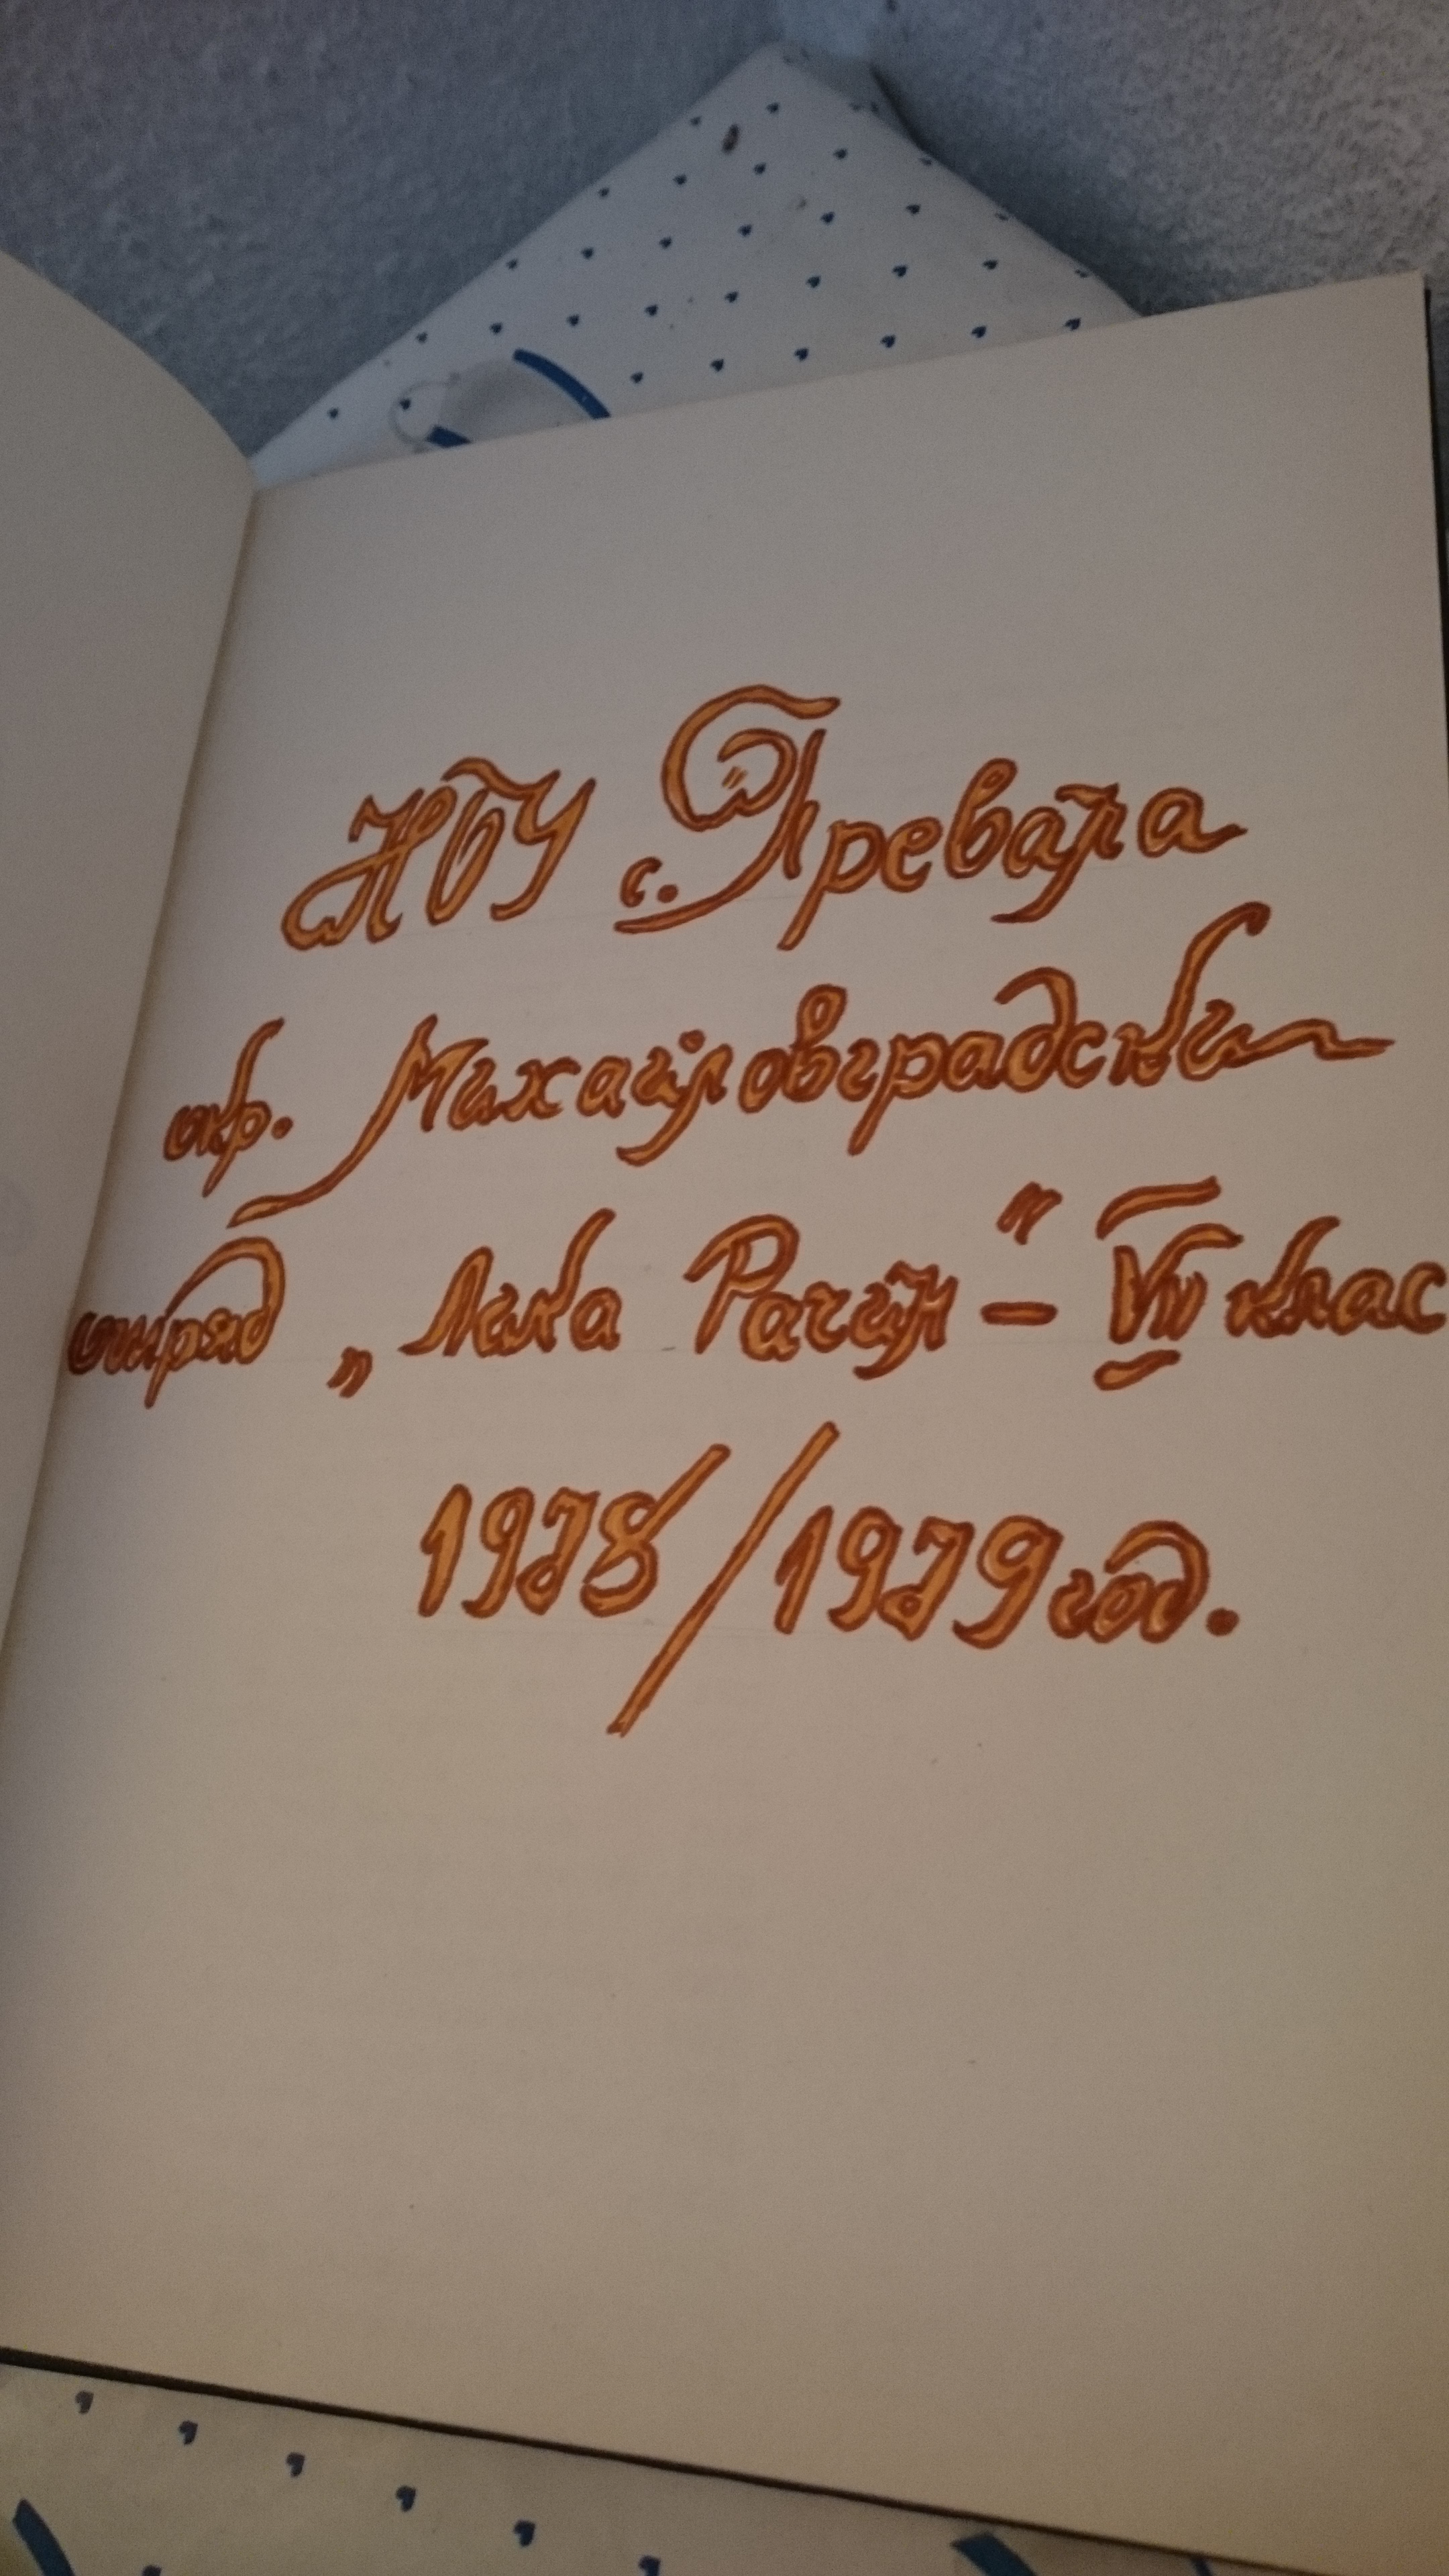 НОУ с. Превала
окр. Михайловградски
отряд „Лика Рачин" – VII клас
1978/1979 год.